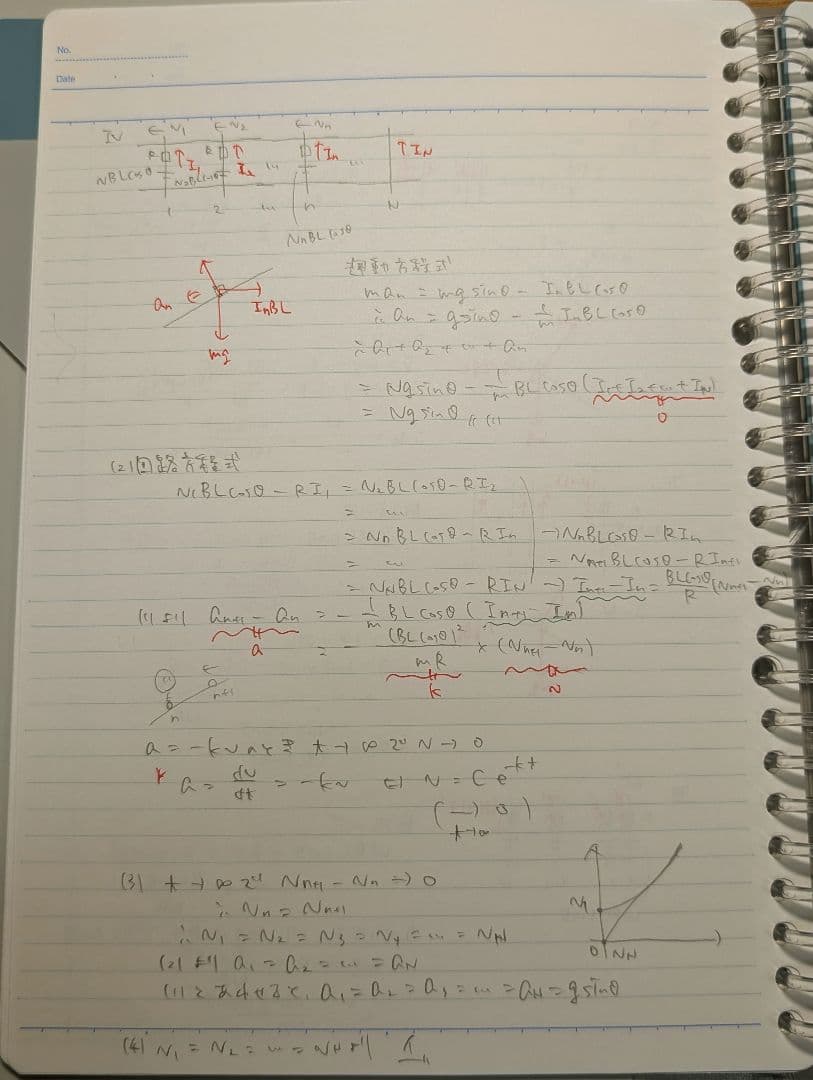 No.
Date
IV ← v1 ← v2 ← vn
R ↑I1 R ↑I2 … ↑In … ↑IN
v1BLcosθ v2BLcosθ
1 2 … n N
vnBLcosθ
an ← InBL
mg
運動方程式
man = mg sinθ - InBLcosθ
∴ an = gsinθ - 1/m InBLcosθ
∴ a1 + a2 + … + an
= Ngsinθ - 1/m BLcosθ (I1+I2+…+IN)
0
= Ngsinθ // (1)
(2) 回路方程式
v1BLcosθ - RI1 = v2BLcosθ - RI2
= …
= vnBLcosθ - RIn → vnBLcosθ - RIn
= … = vn+1BLcosθ - RIn+1
= vNBLcosθ - RIN → In+1 - In = BLcosθ/R (vn+1 - vn)
(1)より an+1 - an = - 1/m BLcosθ (In+1 - In)
a = - (BLcosθ)²/mR × (vn+1 - vn)
k v
n n+1
a = -kv t → ∞ で v → 0
* a = dv/dt = -kv より v = Ce^-kt
( → 0 )
t→∞
(3) t → ∞ で vn+1 - vn → 0
∴ vn = vn+1
∴ v1 = v2 = v3 = v4 = … = vN
(2)より a1 = a2 = … = aN
(1)とあわせると, a1 = a2 = a3 = … = aN = gsinθ
v1
0 vN
(4) v1 = v2 = … = vNより I